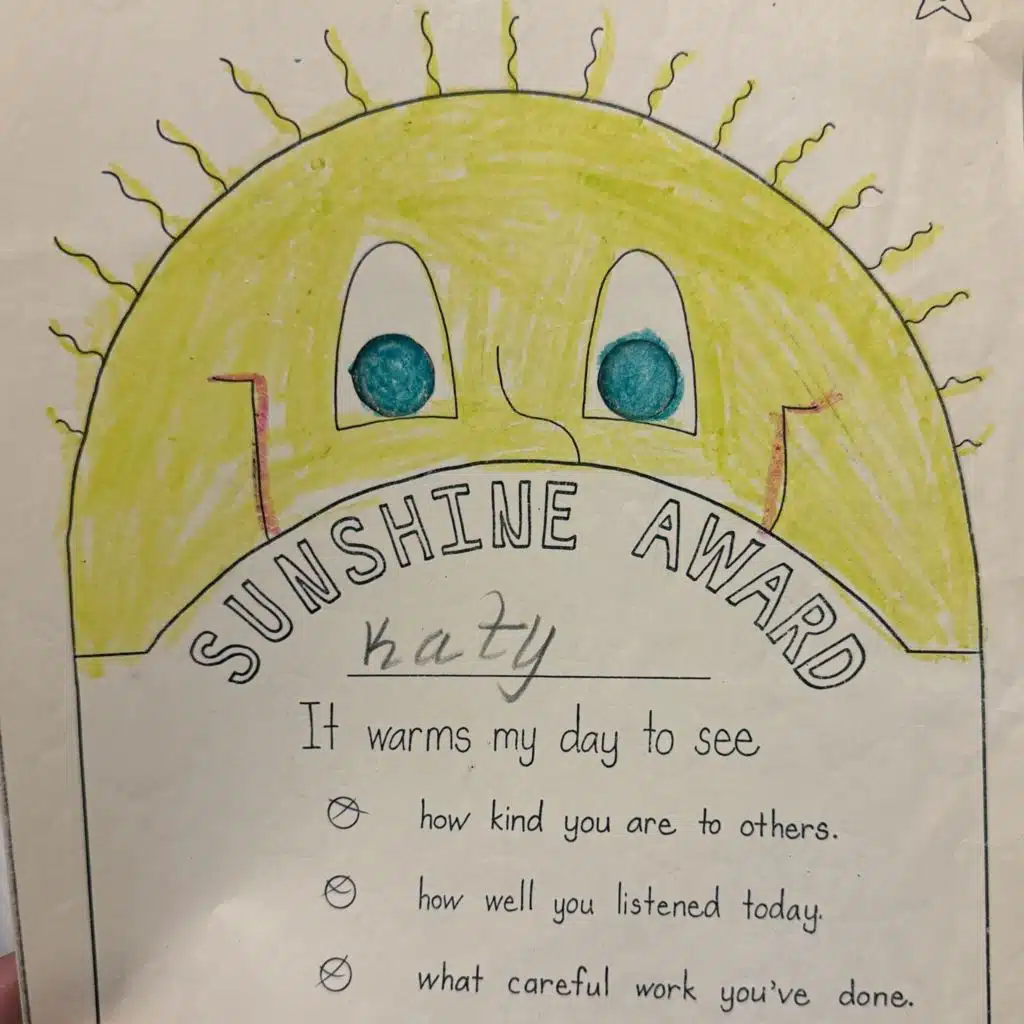 SUNSHINE AWARD
Katy
It warms my day to see
how kind you are to others.
how well you listened today.
what careful work you've done.